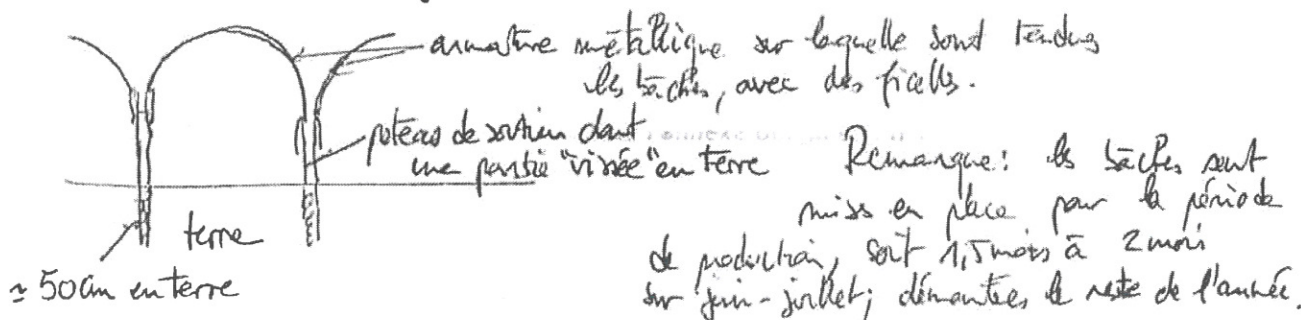 armature métallique sur laquelle sont tendues
les bâches, avec des ficelles.
poteau de soutien dont
une partie "vissée" en terre
terre
≃ 50cm en terre
Remarque: les bâches sont
mises en place pour la période
de production, soit 1,5 mois à 2 mois
sur juin-juillet; démontées le reste de l'année.